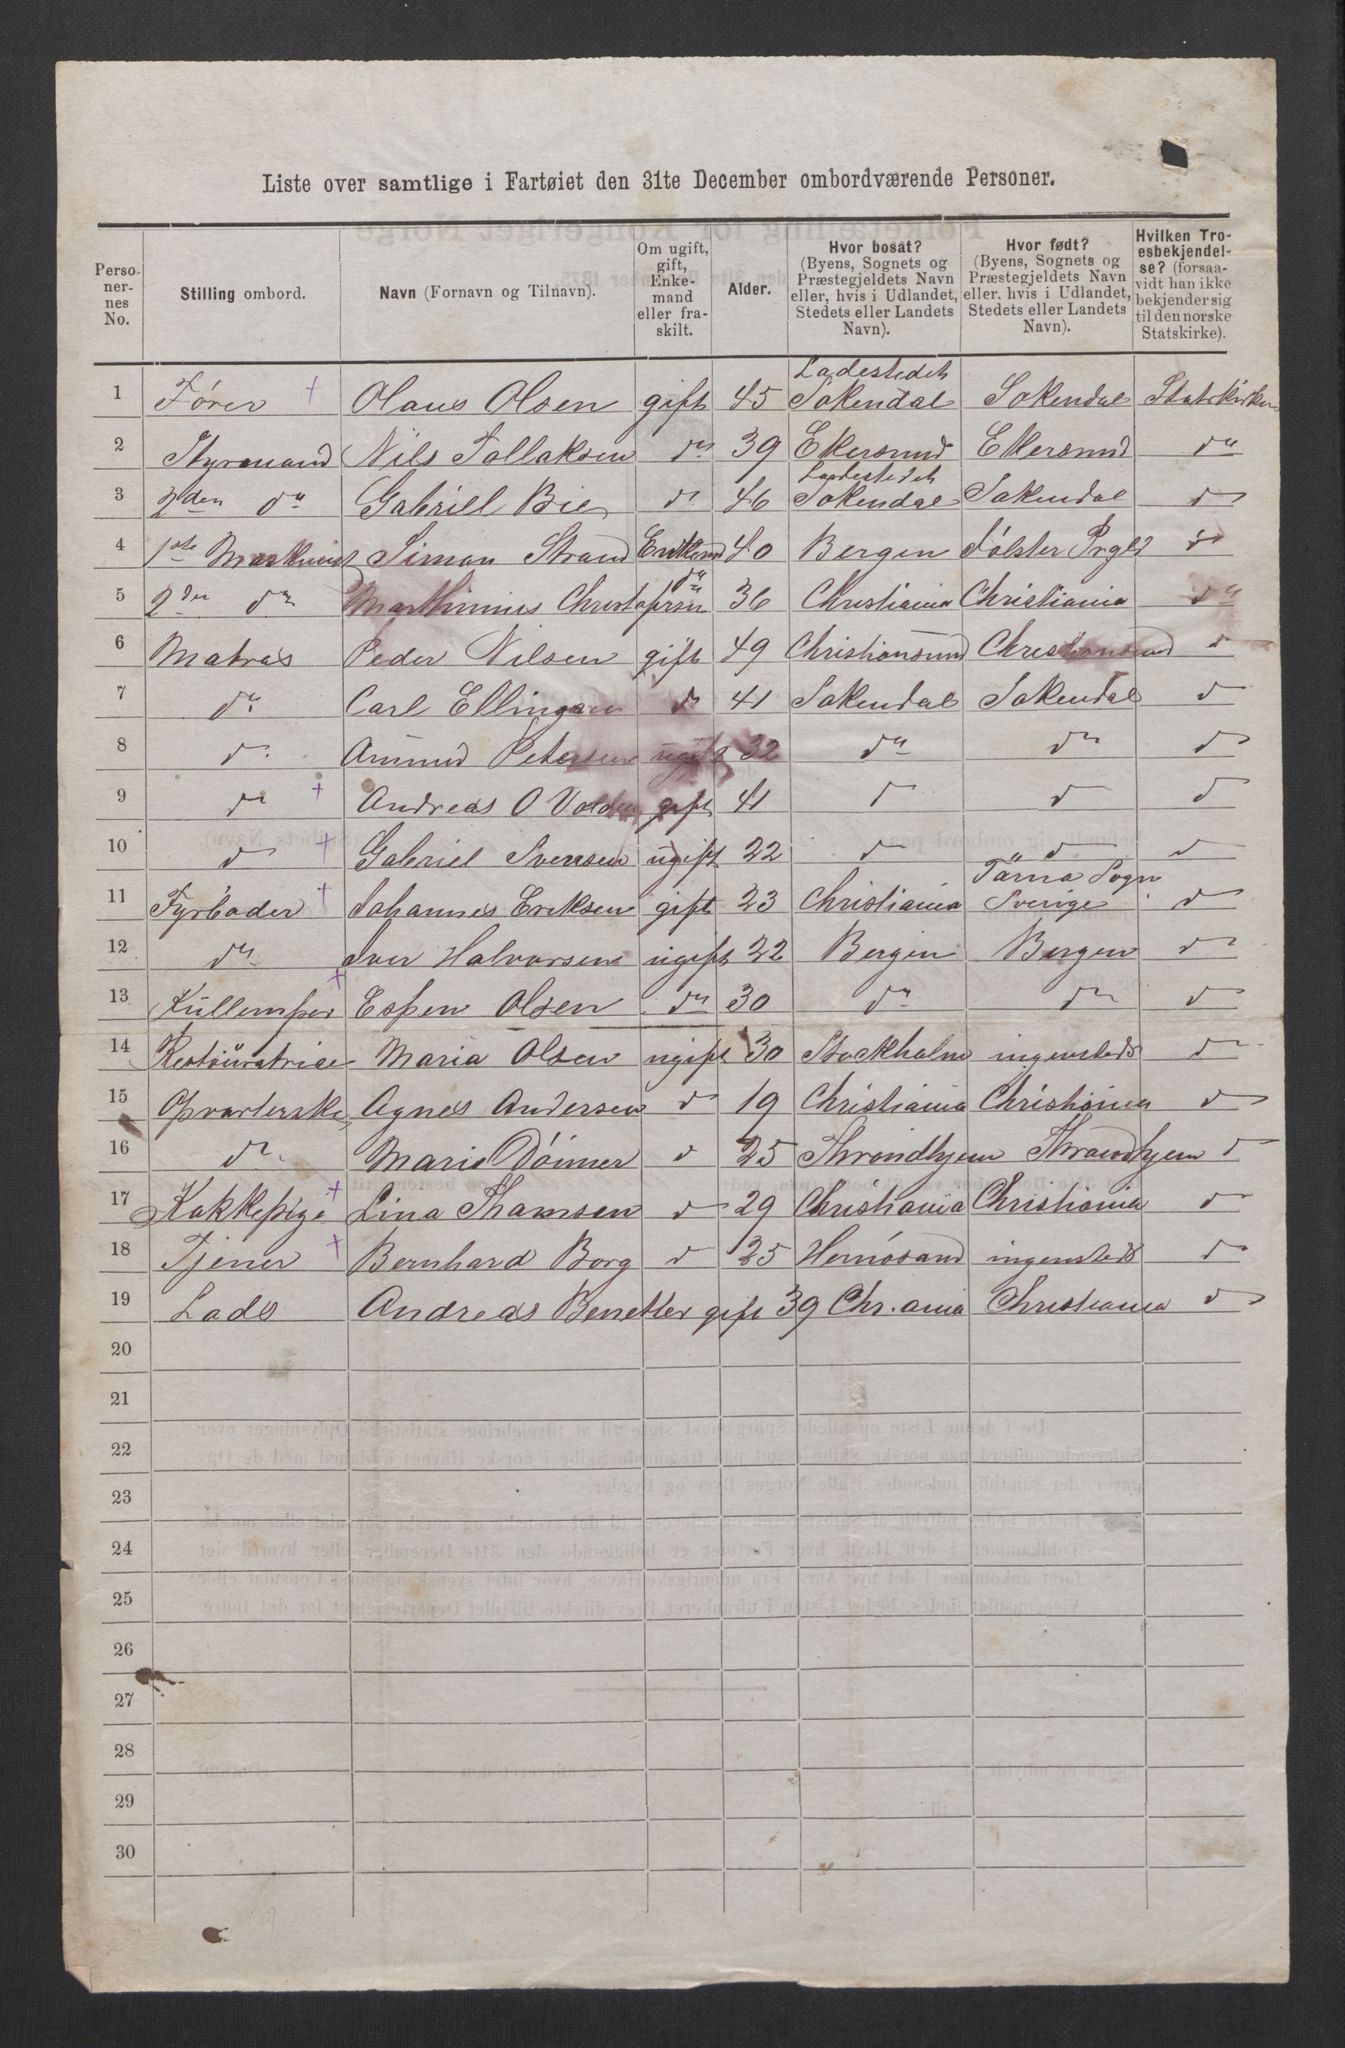 Liste over samtlige i Fartøiet den 31te December ombordværende Personer.
Perso-
ner-
nes
No.
Stilling ombord.
Navn (Fornavn og Tilnavn).
Om ugift,
gift,
Enke-
mand
eller fra-
skilt.
Alder.
Hvor bosat?
(Byens, Sognets og
Præstegjeldets Navn
eller, hvis i Udlandet,
Stedets eller Landets
Navn).
Hvor født?
(Byens, Sognets og
Præstegjeldets Navn
eller, hvis i Udlandet,
Stedets eller Landets
Navn).
Hvilken Tro-
esbekjendel-
se? (forsaa-
vidt han ikke
bekjender sig
til den norske
Statskirke).
Ladestedet
1 Fører Olaus Olsen gift 45 Sokendal Sokendal Statskirken
2 Styrmand Nils Tollaksen do 39 Ekersund Ekersund do
Ladestedet
3 2den do Gabriell Bie do 46 Sokendal Sokendal do
4 1ste Simon Strand Enkemd 40 Bergen Følster Prgld do
5 2den do Marthinius Christofersen do 36 Christiania Christiania do
6 Matros Peder Nilsen gift 49 Christiansund Christiansund do
7 do Carl Ellingsen do 41 Sokendal Sokendal do
8 do Amund Petersen ugift 32 do do do
9 do Andreas O Volden gift 41 do do do
10 do Gabriel Svensen ugift 22 do do do
Tärna Sogn
11 Fyrbøder Johannes Eriksen gift 23 Christiania Sverige do
12 do Iver Halvorsen ugift 22 Bergen Bergen do
13 Kullemper Espen Olsen do 30 do do do
14 Restauratrice Maria Olsen ugift 30 Stockholm ingensteds do
15 Opvarterske Agnes Andersen do 19 Christiania Christiania do
16 do Marie Dønner do 25 Throndhjem Throndhjem do
17 Kokkepige Lina Thamsen do 29 Christiania Christiania do
18 Tjener Bernhard Borg do 25 Hernösand ingensteds do
19 Lods Andreas Benetter gift 39 Chr.ania Christiania do
20
21
22
23
24
25
26
27
28
29
30